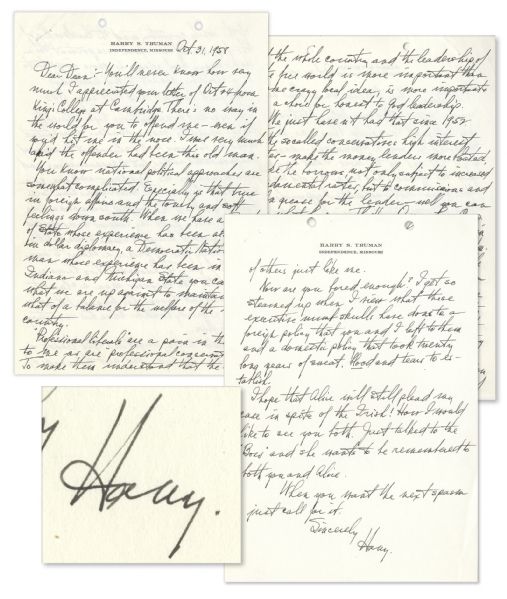 HARRY S. TRUMAN
INDEPENDENCE, MISSOURI
Oct 31, 1958
Dear Dean: You'll never know how very
much I appreciated your letter of Oct 4 from
Kings College at Cambridge. There is no way in
the world for you to offend me – even if
you'd hit me in the nose. I was very much
afraid the offender had been this old man.
You know national political approaches are
somewhat complicated. Especially is that true
in foreign affairs and the touchy and soft
feelings down south. When we have a
of State whose experience has been
in dollar diplomacy, a Democratic
man whose experience has been in
Indiana and Michigan State you can
what we are up against to maintain
what of a balance for the welfare of the
country.
Professional liberals are a pain in the
to me as are professional
to make them understand that the
the whole country and the leadership of
free world is more important than
crazy local idea, is more important
a choice for honest to God leadership.
We just have not had that since 1952
the so called conservatives high interest
make the money lenders more
he borrows, not only subject to increased
rates, but to commissions and
a for the leader – well you can
HARRY S. TRUMAN
INDEPENDENCE, MISSOURI
of others just like me.
Now are you bored enough? I get so
steamed up when I view what these
executive numb skulls have done to a
foreign policy that you and I left to them
and a domestic policy that took twenty
long years of sweat, blood and tears to es-
tablish.
I hope that Alice will still plead my
case in spite of the Irish! How I would
like to see you both. Just talked to the
"Boss" and she wants to be remembered to
both you and Alice.
When you want the next spasm
just call for it.
Sincerely
Harry.
Harry.